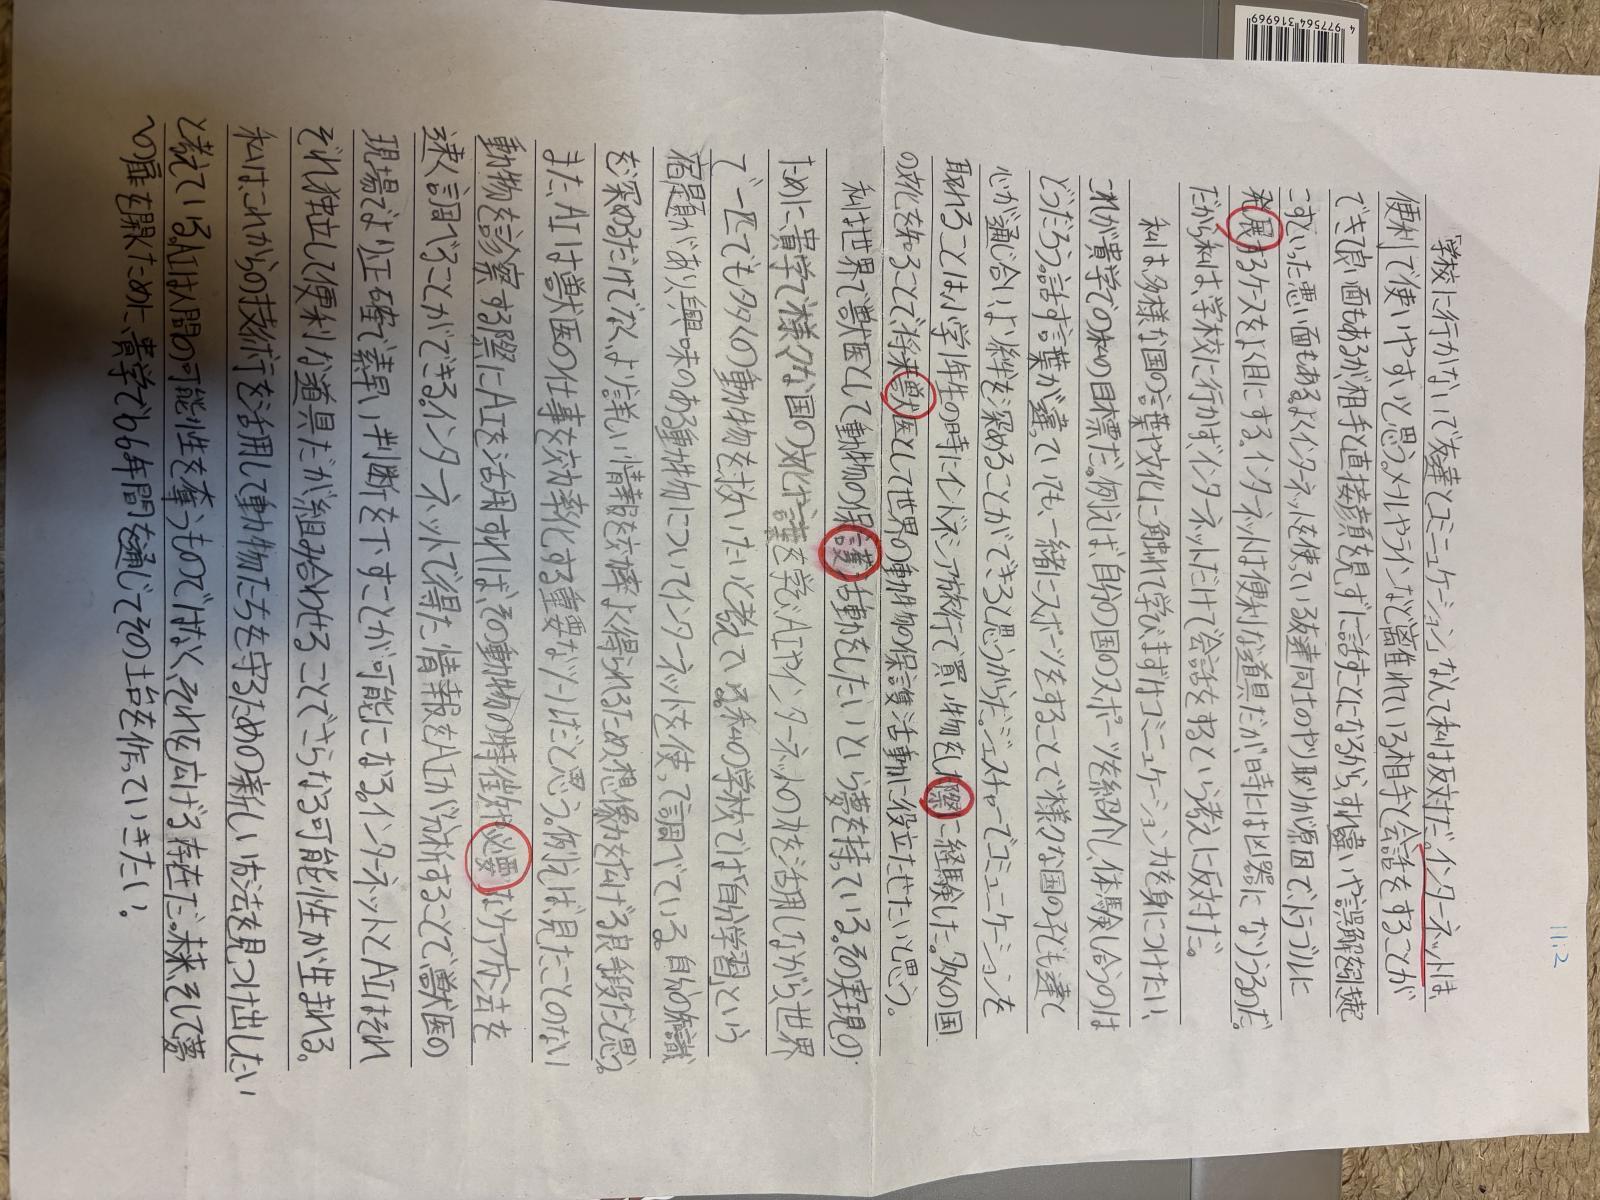 11:2
「学校に行かないで友達とコミュニケーション」なんて私は反対だ。インターネットは
便利で使いやすいと思う。メールやラインなど離れている相手と会話をすることが
でき良い面もあるが相手と直接顔を見ずに話すことになるから、すれ違いや誤解を引き起
こすといった悪い面もある。よくインターネットを使っている友達同士のやり取りが原因でトラブルに
発展するケースをよく目にする。インターネットは便利な道具だが時には凶器になりうるのだ。
だから私は学校に行かずインターネットだけで会話をするという考えに反対だ。
私は多様な国の言葉や文化に触れて学び、まずはコミュニケーション力を身につけたい。
これが貴学での私の目標だ。例えば、自分の国のスポーツを紹介し、体験し合うのは
どうだろう。話す言葉が違っていても、一緒にスポーツをすることで様々な国の子ども達と
心が通じ合いより絆を深めることができると思うからだ。ジェスチャーでコミュニケーションを
取れることは小学4年生の時にインドネシア旅行で買い物をした際に経験した。多くの国
の文化を知ることで、将来獣医として世界の動物の保護活動に役立たせたいと思う。
私は世界で獣医として動物の保護活動をしたいという夢を持っている。その実現の
ために貴学で様々な国の文化や言葉を学び、AIやインターネットの力を活用しながら世界
で一匹でも多くの動物を救いたいと考えている。私の学校では「自分学習」という
宿題があり、興味のある動物についてインターネットを使って調べている。自分の知識
を深めるだけでなく、より詳しい情報を効率よく得られるため想像力を広げる良い手段だと思う。
また、AIは獣医の仕事を効率化する重要なツールだと思う。例えば見たことのない
動物を診察する際にAIを活用すれば、その動物の特徴や必要なケア方法を
速く調べることができる。インターネットで得た情報をAIが分析することで獣医の
現場でより正確で素早い判断を下すことが可能になる。インターネットとAIはそれ
ぞれ独立して便利な道具だが組み合わせることでさらなる可能性が生まれる。
私はこれからの技術を活用して動物たちを守るための新しい方法を見つけ出したい
と考えている。AIは人間の可能性を奪うものではなく、それを広げる存在だ。未来そして夢
への扉を開くため、貴学での6年間を通じてその土台を作っていきたい。
4 977564 316969